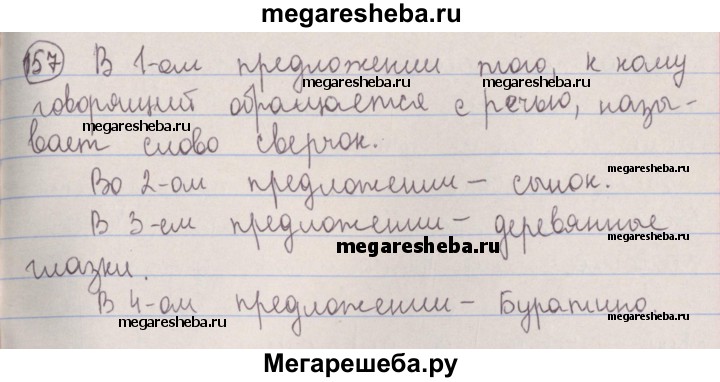 megaresheba.ru
157 В 1-ом предложении того, к кому
megaresheba.ru megaresheba.ru
говорящий обращается с речью, назы-
megaresheba.ru megaresheba.ru
вает слово сверчок.
Во 2-ом предложении – сынок.
megaresheba.ru
В 3-ем предложении – деревянные
megaresheba.ru
глазки.
В 4-ом предложении – Буратино.
megaresheba.ru megaresheba.ru
Мегарешеба.ру